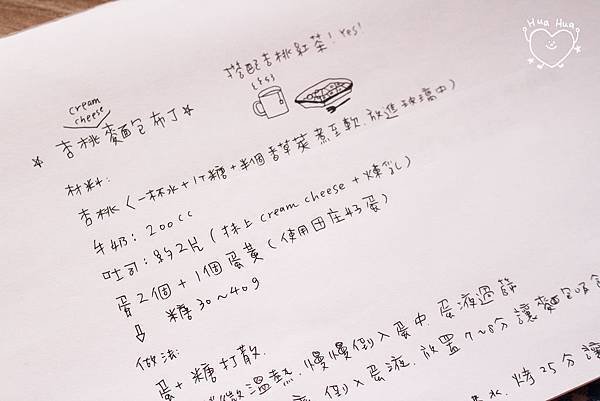 Hua Hua
搭配杏桃紅茶! Yes!
cream
cheese
* 杏桃麵包布丁 *
材料:
杏桃 (一杯水+1T糖+半個香草莢煮至軟.放進玻璃中)
牛奶: 200cc
吐司: 約2片 (抹上 cream cheese + 煉乳)
蛋2個+1個蛋黃 (使用田庄好蛋)
糖30~40g
做法:
蛋+糖打散.
微溫熱.慢慢倒入蛋中.蛋液過篩
倒入蛋液.放置7~8分讓麵包吸
水.烤25分讓